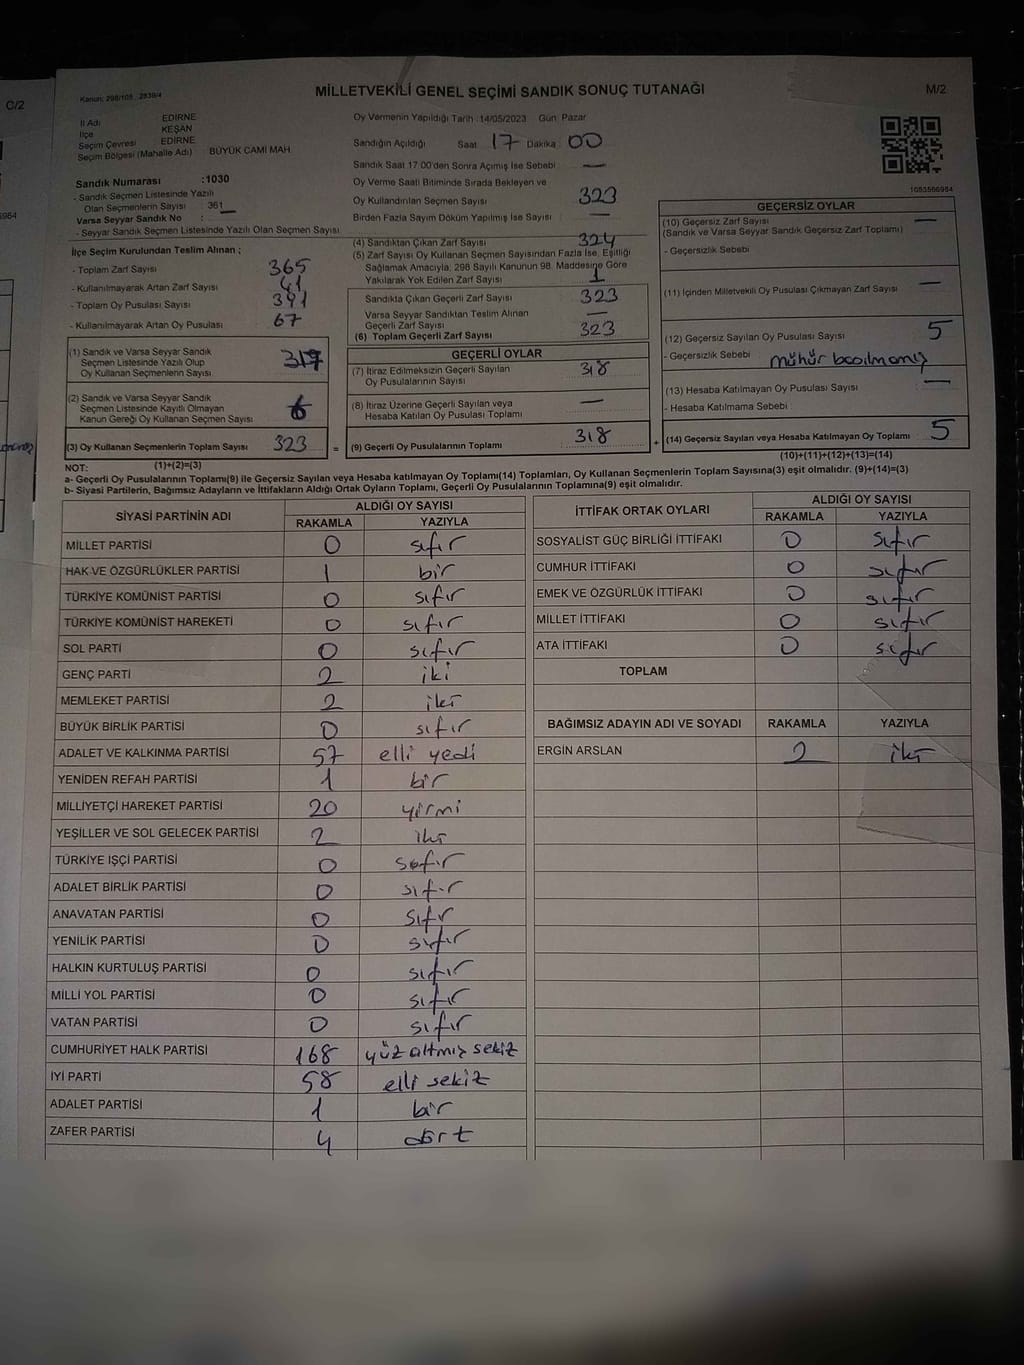 C/2
Kanun: 298/105 , 2839/4
MİLLETVEKİLİ GENEL SEÇİMİ SANDIK SONUÇ TUTANAĞI
M/2
İl Adı EDİRNE
İlçe KEŞAN
Seçim Çevresi EDİRNE
Seçim Bölgesi (Mahalle Adı) BÜYÜK CAMİ MAH.
Sandık Numarası :1030
- Sandık Seçmen Listesinde Yazılı
Olan Seçmenlerin Sayısı : 361
Varsa Seyyar Sandık No : —
- Seyyar Sandık Seçmen Listesinde Yazılı Olan Seçmen Sayısı
Oy Vermenin Yapıldığı Tarih :14/05/2023 Gün: Pazar
Sandığın Açıldığı Saat 17 Dakika 00
Sandık Saat 17:00'den Sonra Açımış İse Sebebi —
Oy Verme Saati Bitiminde Sırada Bekleyen ve
Oy Kullandırılan Seçmen Sayısı 323
Birden Fazla Sayım Döküm Yapılmış İse Sayısı —
1083566984
İlçe Seçim Kurulundan Teslim Alınan ;
- Toplam Zarf Sayısı 365
- Kullanılmayarak Artan Zarf Sayısı 41
- Toplam Oy Pusulası Sayısı 391
- Kullanılmayarak Artan Oy Pusulası 67
(1) Sandık ve Varsa Seyyar Sandık
Seçmen Listesinde Yazılı Olup
Oy Kullanan Seçmenlerin Sayısı 317
(2) Sandık ve Varsa Seyyar Sandık
Seçmen Listesinde Kayıtlı Olmayan
Kanun Gereği Oy Kullanan Seçmen Sayısı 6
(3) Oy Kullanan Seçmenlerin Toplam Sayısı 323 =
(1)+(2)=(3)
(4) Sandıktan Çıkan Zarf Sayısı 324
(5) Zarf Sayısı Oy Kullanan Seçmen Sayısından Fazla İse, Eşitliği
Sağlamak Amacıyla, 298 Sayılı Kanunun 98. Maddesine Göre
Yakılarak Yok Edilen Zarf Sayısı 1
Sandıkta Çıkan Geçerli Zarf Sayısı 323
Varsa Seyyar Sandıktan Teslim Alınan
Geçerli Zarf Sayısı —
(6) Toplam Geçerli Zarf Sayısı 323
GEÇERLİ OYLAR
(7) İtiraz Edilmeksizin Geçerli Sayılan
Oy Pusulalarının Sayısı 318
(8) İtiraz Üzerine Geçerli Sayılan veya
Hesaba Katılan Oy Pusulası Toplamı —
(9) Geçerli Oy Pusulalarının Toplamı 318 +
GEÇERSİZ OYLAR
(10) Geçersiz Zarf Sayısı —
(Sandık ve Varsa Seyyar Sandık Geçersiz Zarf Toplamı)
- Geçersizlik Sebebi
(11) İçinden Milletvekili Oy Pusulası Çıkmayan Zarf Sayısı —
(12) Geçersiz Sayılan Oy Pusulası Sayısı 5
- Geçersizlik Sebebi mühür basılmamış
(13) Hesaba Katılmayan Oy Pusulası Sayısı —
- Hesaba Katılmama Sebebi :
(14) Geçersiz Sayılan veya Hesaba Katılmayan Oy Toplamı 5
(10)+(11)+(12)+(13)=(14)
NOT:
a- Geçerli Oy Pusulalarının Toplamı(9) ile Geçersiz Sayılan veya Hesaba katılmayan Oy Toplamı(14) Toplamları, Oy Kullanan Seçmenlerin Toplam Sayısına(3) eşit olmalıdır. (9)+(14)=(3)
b- Siyasi Partilerin, Bağımsız Adayların ve İttifakların Aldığı Ortak Oyların Toplamı, Geçerli Oy Pusulalarının Toplamına(9) eşit olmalıdır.
SİYASİ PARTİNİN ADI ALDIĞI OY SAYISI
RAKAMLA YAZIYLA
MİLLET PARTİSİ 0 sıfır
HAK VE ÖZGÜRLÜKLER PARTİSİ 1 bir
TÜRKİYE KOMÜNİST PARTİSİ 0 sıfır
TÜRKİYE KOMÜNİST HAREKETİ 0 sıfır
SOL PARTİ 0 sıfır
GENÇ PARTİ 2 iki
MEMLEKET PARTİSİ 2 iki
BÜYÜK BİRLİK PARTİSİ 0 sıfır
ADALET VE KALKINMA PARTİSİ 57 elli yedi
YENİDEN REFAH PARTİSİ 1 bir
MİLLİYETÇİ HAREKET PARTİSİ 20 yirmi
YEŞİLLER VE SOL GELECEK PARTİSİ 2 iki
TÜRKİYE İŞÇİ PARTİSİ 0 sıfır
ADALET BİRLİK PARTİSİ 0 sıfır
ANAVATAN PARTİSİ 0 sıfır
YENİLİK PARTİSİ 0 sıfır
HALKIN KURTULUŞ PARTİSİ 0 sıfır
MİLLİ YOL PARTİSİ 0 sıfır
VATAN PARTİSİ 0 sıfır
CUMHURİYET HALK PARTİSİ 168 yüz altmış sekiz
İYİ PARTİ 58 elli sekiz
ADALET PARTİSİ 1 bir
ZAFER PARTİSİ 4 dört
İTTİFAK ORTAK OYLARI ALDIĞI OY SAYISI
RAKAMLA YAZIYLA
SOSYALİST GÜÇ BİRLİĞİ İTTİFAKI 0 sıfır
CUMHUR İTTİFAKI 0 sıfır
EMEK VE ÖZGÜRLÜK İTTİFAKI 0 sıfır
MİLLET İTTİFAKI 0 sıfır
ATA İTTİFAKI 0 sıfır
TOPLAM
BAĞIMSIZ ADAYIN ADI VE SOYADI RAKAMLA YAZIYLA
ERGİN ARSLAN 2 iki